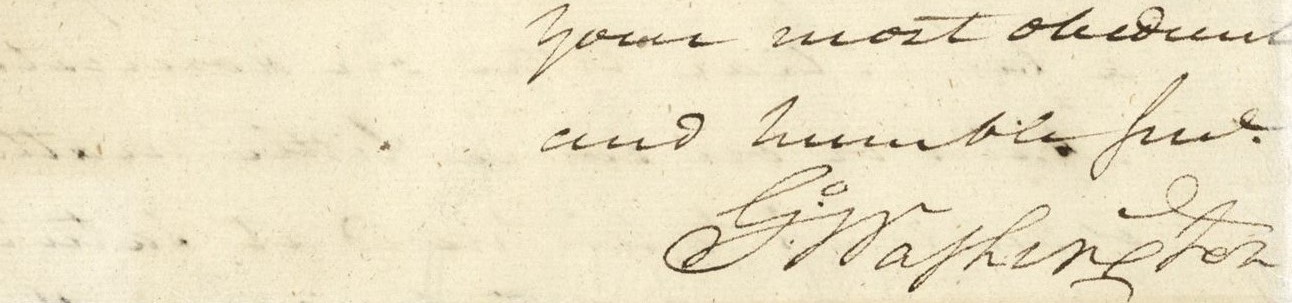 Your most obedient
and humble Serv.t
G:o Washington